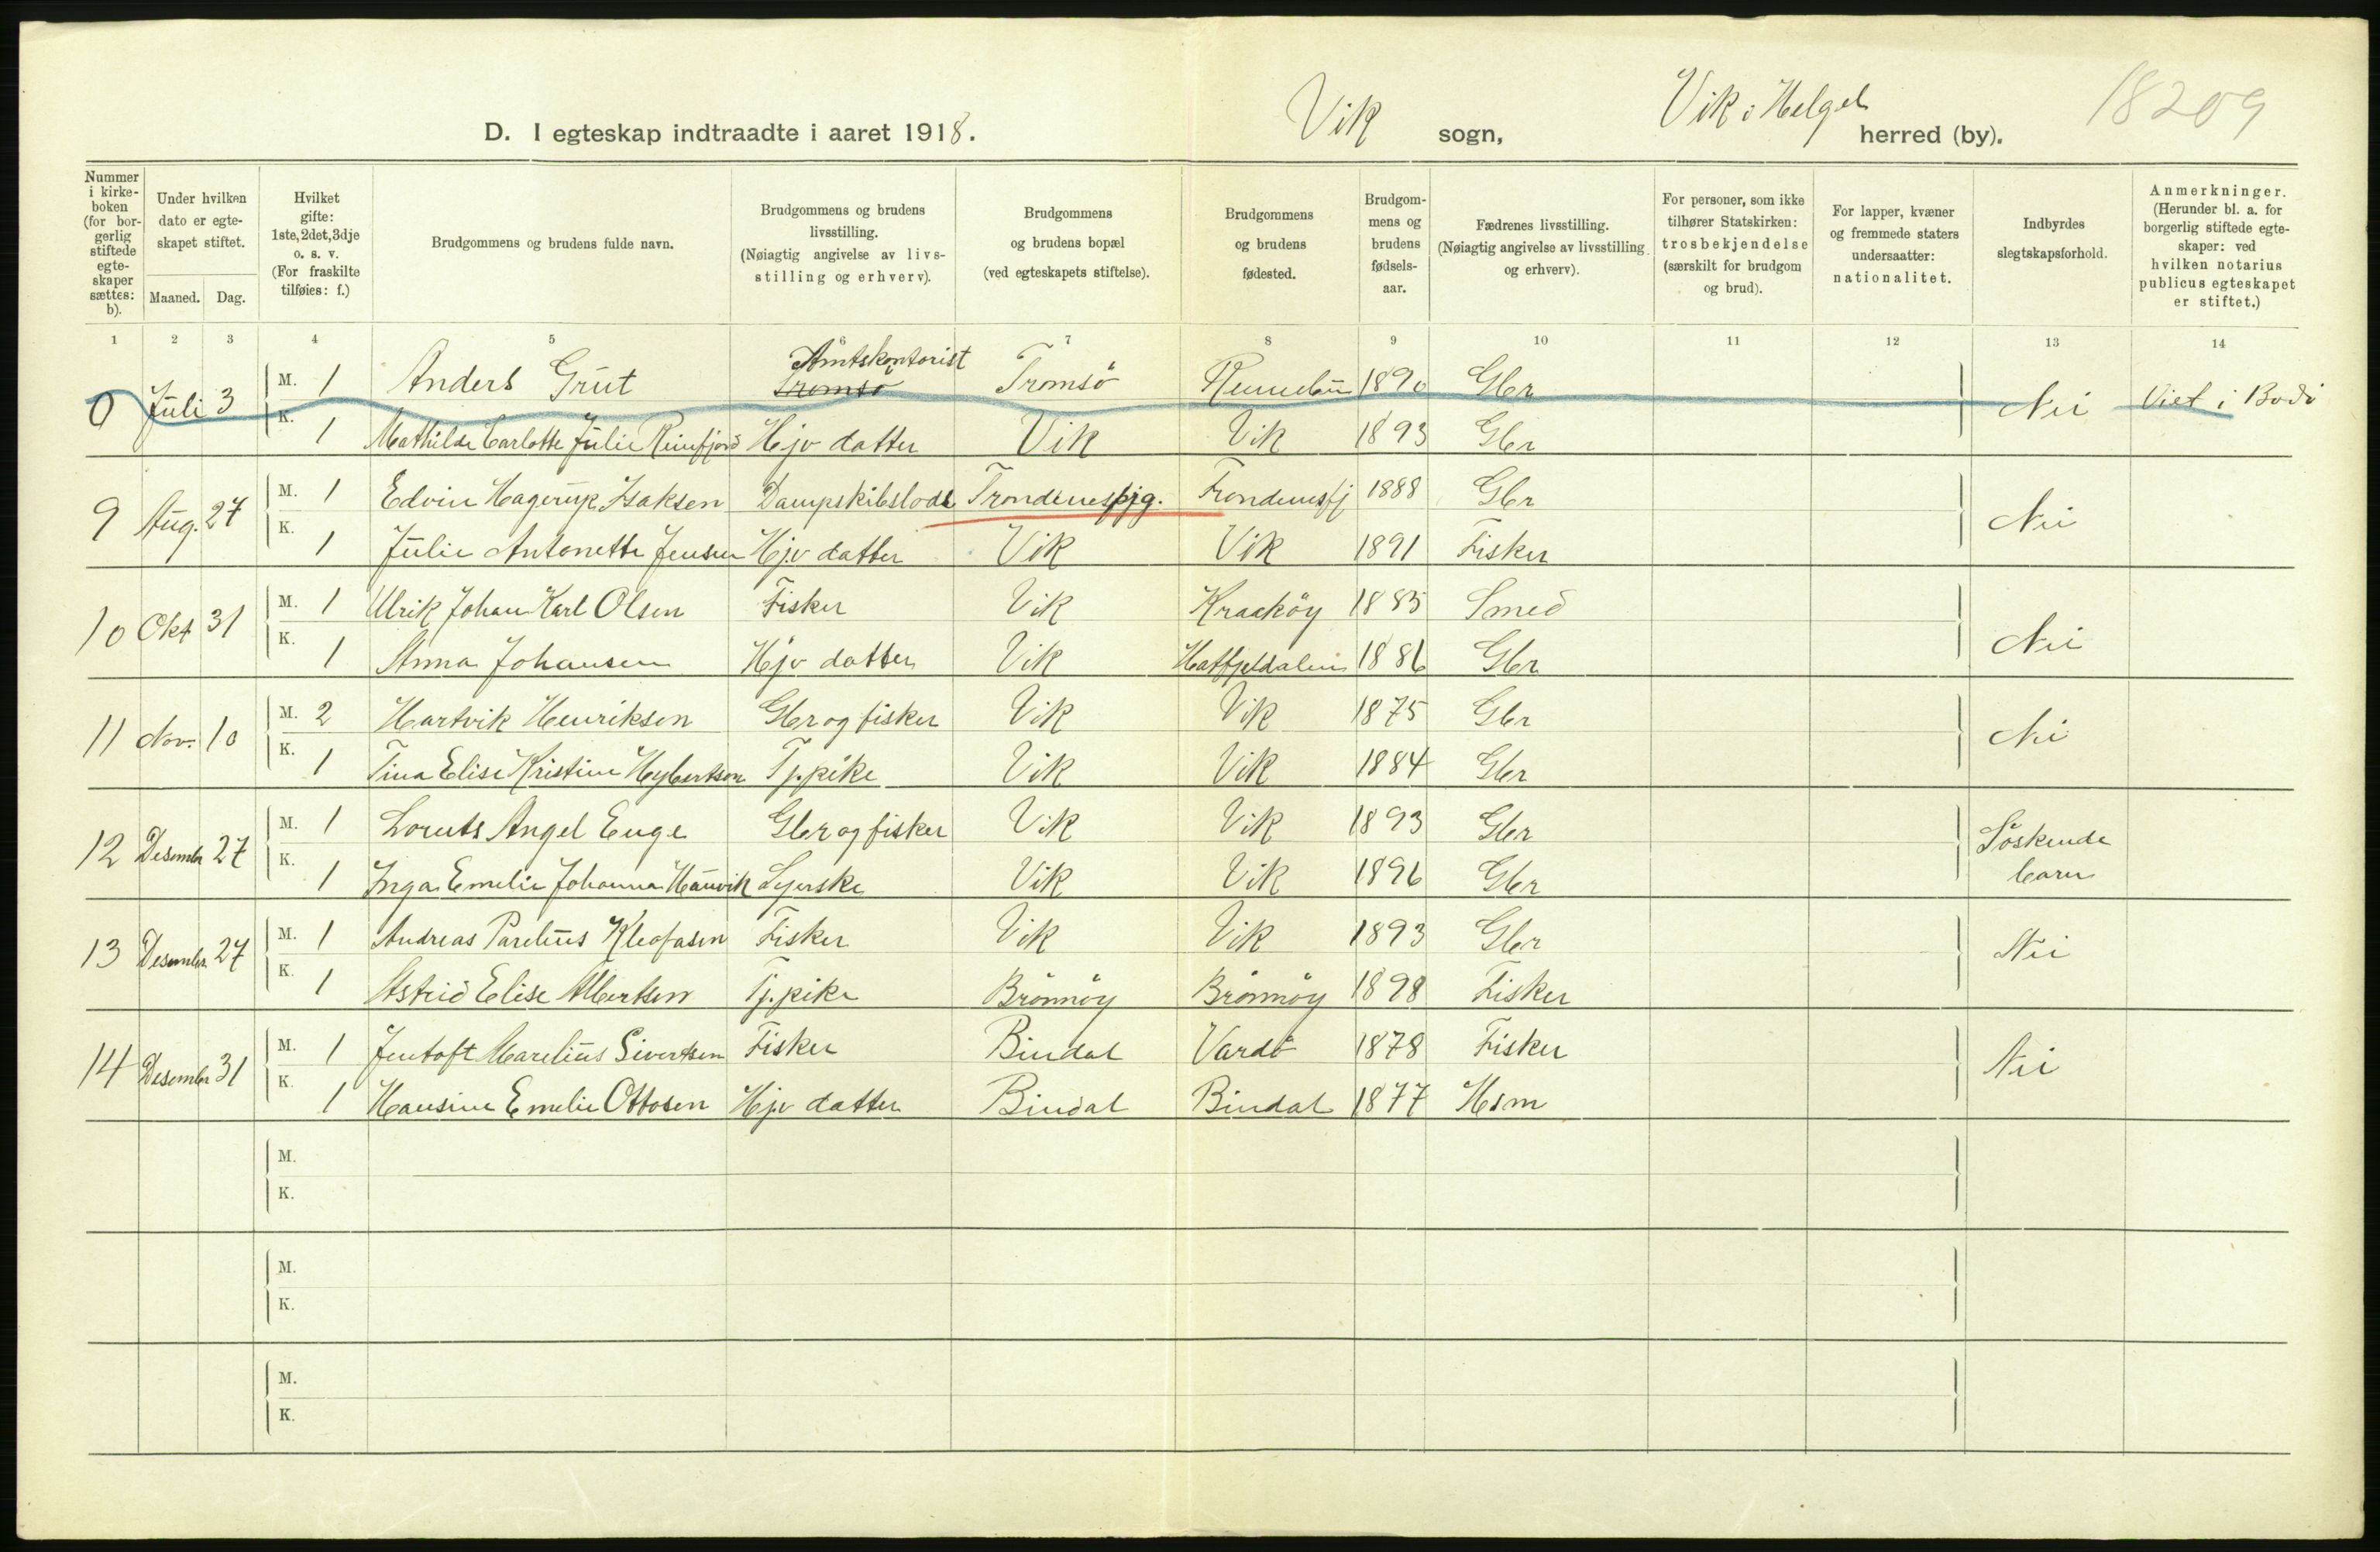 18209
D. I egteskap indtraadte i aaret 1918. Vik sogn, Vik i Helgel herred (by).
Nummer i kirke-boken (for bor-gerlig stiftede egte-skaper sættes: b).
Under hvilken dato er egte-skapet stiftet.
Maaned. Dag.
Hvilket gifte: 1ste, 2det, 3dje o. s. v. (For fraskilte tilføies: f.)
Brudgommens og brudens fulde navn.
Brudgommens og brudens livsstilling. (Nøiagtig angivelse av livs-stilling og erhverv).
Brudgommens og brudens bopæl (ved egteskapets stiftelse).
Brudgommens og brudens fødested.
Brudgom-mens og brudens fødsels-aar.
Fædrenes livsstilling. (Nøiagtig angivelse av livsstilling og erhverv).
For personer, som ikke tilhører Statskirken: trosbekjendelse (særskilt for brudgom og brud).
For lapper, kvæner og fremmede staters undersaatter: nationalitet.
Indbyrdes slegtskapsforhold.
Anmerkninger. (Herunder bl. a. for borgerlig stiftede egte-skaper: ved hvilken notarius publicus egteskapet er stiftet.)
1 2 3 4 5 6 7 8 9 10 11 12 13 14
0 Juli 3 M. 1 Anders Grut Amtskontorist Tromsö Tromsö 1890 Gbr Nei Viet i Bodö
K. 1 Mathilde Carlotte Julie Reinfjord Hjv datter Vik Vik 1893 Gbr
9 Aug. 27 M. 1 Edvin Hagerup Isaksen Dampskibslods Trondenesfjg. Trondenesfj 1888 Gbr Nei
K. 1 Julie Antonette Jensen Hjv datter Vik Vik 1891 Fisker
10 Okt 31 M. 1 Ulrik Johan Karl Olsen Fisker Vik 1885 Smed Nei
K. 1 Anna Johansen Hjv datter Vik Hatfjeldalen 1886 Gbr
11 Nov. 10 M. 2 Hartvik Henriksen Gbr og fisker Vik Vik 1875 Gbr Nei
K. 1 Tina Elise Kristine Heybertsen Tj.pike Vik Vik 1884 Gbr
12 Desember 27 M. 1 Lorents Angel Enge Gbr og fisker Vik Vik 1893 Gbr Söskende
barn
K. 1 Inga Emelie Johanna Hauvik Syerske Vik Vik 1896 Gbr
13 Desember 27 M. 1 Andreas Parelius Kleofasen Fisker Vik Vik 1893 Gbr Nei
K. 1 Astrid Elise Albertsen Tj.pike Brönnöy Brönnöy 1898 Fisker
14 Desember 31 M. 1 Jentoft Marelius Sivertsen Fisker Bindal Vardö 1878 Fisker Nei
K. 1 Hansine Emelie Ottosen Hjv datter Bindal Bindal 1877 Hsm
M.
K.
M.
K.
M.
K.